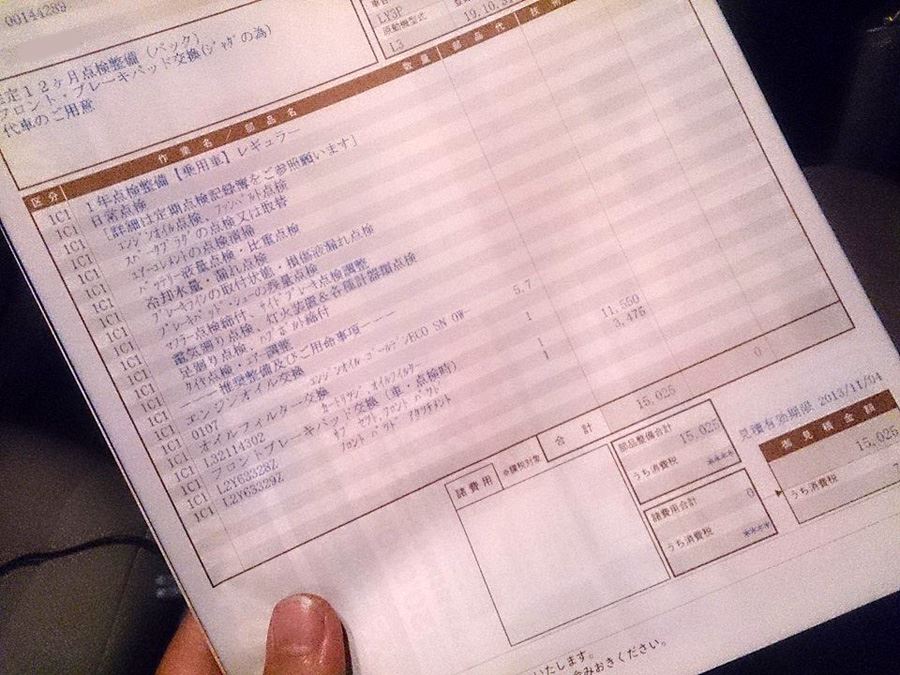 00144289
LY3P
原動機型式
L3
19.10.31
定12ヶ月点検整備(パック)
フロント・ブレーキパッド交換(ジャダの為)
代車のご用意
区分 作業名/部品名 数量 部品代 技術
1C1 1年点検整備【乗用車】レギュラー
1C1 日常点検
1C1 [詳細は定期点検記録簿をご参照願います]
1C1 エンジンオイル点検、ファンベルト点検
1C1 スパークプラグの点検又は取替
1C1 エアーエレメントの点検清掃
1C1 バッテリー液量点検・比重点検
1C1 冷却水量・漏れ点検
1C1 ブレーキラインの取付状態・損傷液漏れ点検
1C1 ブレーキパッド・シューの残量点検
1C1 マフラー点検締付、サイドブレーキ点検調整
1C1 電気廻り点検、灯火装置&各種計器類点検
1C1 足廻り点検、ハブボルト締付
1C1 タイヤ点検・エアー調整
1C1 ---推奨整備及びご用命事項---
1C1 エンジンオイル交換
1C1 0107 エンジンオイル・ゴールデンECO SN 0W- 5.7
1C1 オイルフィルター交換
1C1 L32114302 カートリッジ、オイルフィルター 1
1C1 フロントブレーキパッド交換(車・点検時)
1C1 L2Y63328Z パッド セット、フロント 1 11,550
1C1 L2Y63329Z フロント パッド アタッチメント 1 3,475
合計 15,025 0
諸費用 ※課税対象
部品整備合計 15,025
うち消費税 ****
諸費用合計 0
うち消費税 ****
見積有効期限 2013/11/04
御見積金額
15,025
うち消費税 7
いたします。
含みおきください。